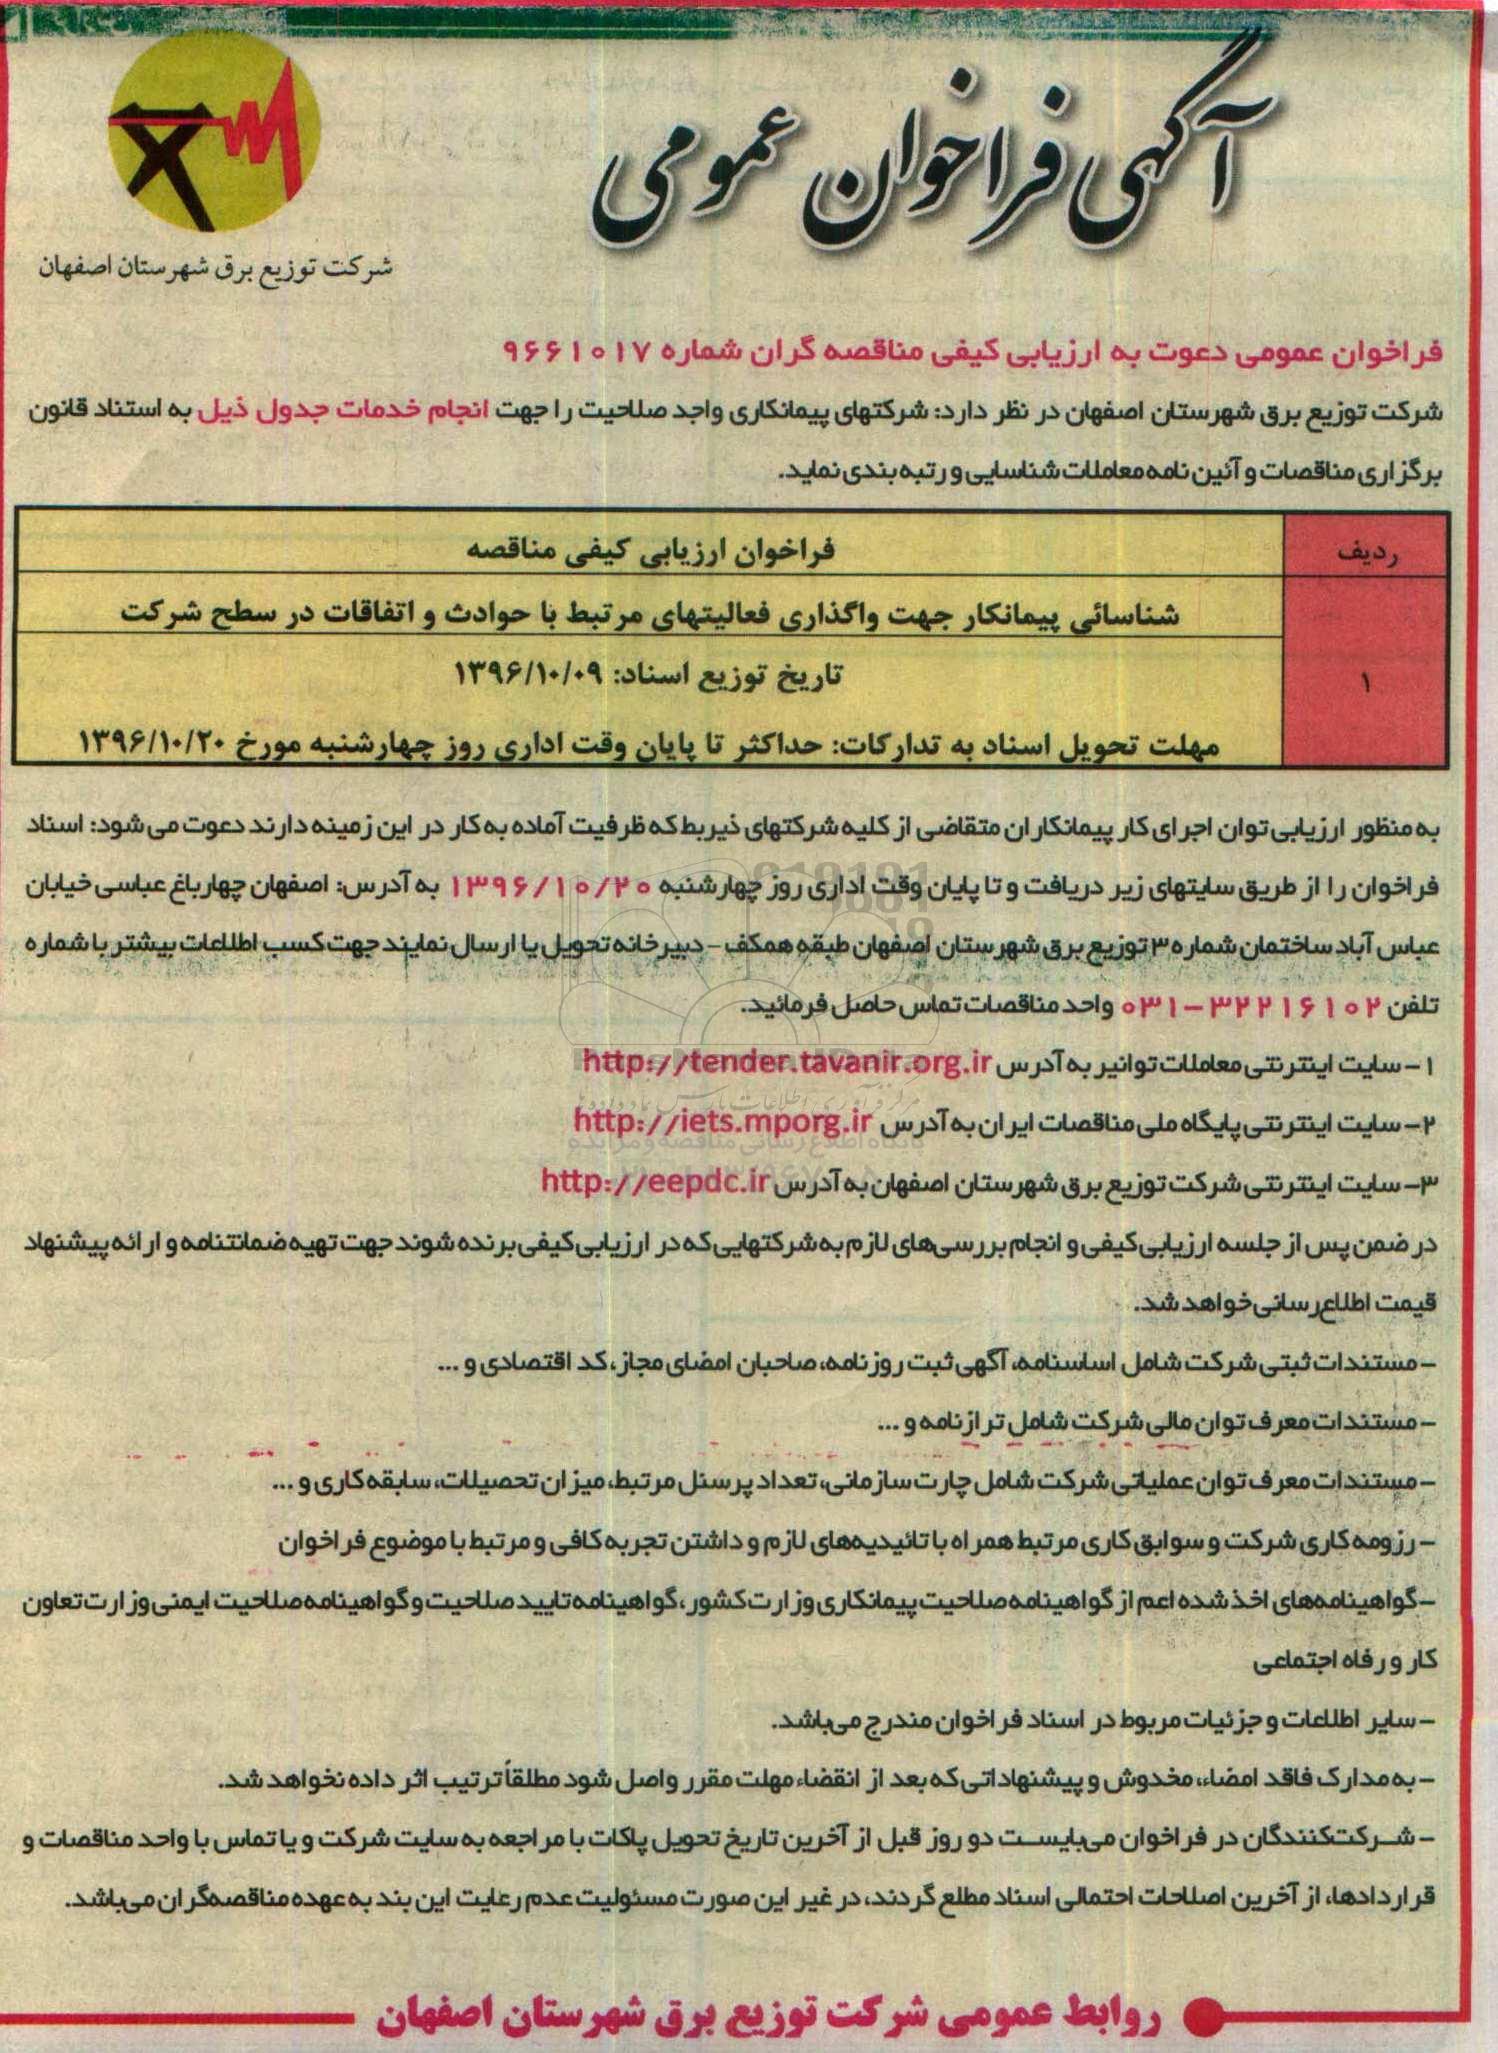 آگهی فراخوان عمومی
شرکت توزیع برق شهرستان اصفهان
فراخوان عمومی دعوت به ارزیابی کیفی مناقصه گران شماره ۹۶۶۱۰۱۷
شرکت توزیع برق شهرستان اصفهان در نظر دارد: شرکتهای پیمانکاری واجد صلاحیت را جهت انجام خدمات جدول ذیل به استناد قانون
برگزاری مناقصات و آئین نامه معاملات شناسایی و رتبه بندی نماید.
ردیف
فراخوان ارزیابی کیفی مناقصه
۱
شناسائی پیمانکار جهت واگذاری فعالیتهای مرتبط با حوادث و اتفاقات در سطح شرکت
تاریخ توزیع اسناد: ۱۳۹۶/۱۰/۰۹
مهلت تحویل اسناد به تدارکات: حداکثر تا پایان وقت اداری روز چهارشنبه مورخ ۱۳۹۶/۱۰/۲۰
به منظور ارزیابی توان اجرای کار پیمانکاران متقاضی از کلیه شرکتهای ذیربط که ظرفیت آماده به کار در این زمینه دارند دعوت می شود: اسناد
فراخوان را از طریق سایتهای زیر دریافت و تا پایان وقت اداری روز چهارشنبه ۱۳۹۶/۱۰/۲۰ به آدرس: اصفهان چهارباغ عباسی خیابان
عباس آباد ساختمان شماره ۳ توزیع برق شهرستان اصفهان طبقه همکف - دبیرخانه تحویل یا ارسال نمایند جهت کسب اطلاعات بیشتر با شماره
تلفن ۳۲۲۱۶۱۰۲-۰۳۱ واحد مناقصات تماس حاصل فرمائید.
۱- سایت اینترنتی معاملات توانیر به آدرس http://tender.tavanir.org.ir
۲- سایت اینترنتی پایگاه ملی مناقصات ایران به آدرس http://iets.mporg.ir
۳- سایت اینترنتی شرکت توزیع برق شهرستان اصفهان به آدرس http://eepdc.ir
در ضمن پس از جلسه ارزیابی کیفی و انجام بررسی‌های لازم به شرکتهایی که در ارزیابی کیفی برنده شوند جهت تهیه ضمانتنامه و ارائه پیشنهاد
قیمت اطلاع‌رسانی خواهد شد.
- مستندات ثبتی شرکت شامل اساسنامه، آگهی ثبت روزنامه، صاحبان امضای مجاز، کد اقتصادی و ...
- مستندات معرف توان مالی شرکت شامل ترازنامه و ...
- مستندات معرف توان عملیاتی شرکت شامل چارت سازمانی، تعداد پرسنل مرتبط، میزان تحصیلات، سابقه کاری و ...
- رزومه کاری شرکت و سوابق کاری مرتبط همراه با تائیدیه‌های لازم و داشتن تجربه کافی و مرتبط با موضوع فراخوان
- گواهینامه‌های اخذ شده اعم از گواهینامه صلاحیت پیمانکاری وزارت کشور، گواهینامه تایید صلاحیت و گواهینامه صلاحیت ایمنی وزارت تعاون
کار و رفاه اجتماعی
- سایر اطلاعات و جزئیات مربوط در اسناد فراخوان مندرج می‌باشد.
- به مدارک فاقد امضاء، مخدوش و پیشنهاداتی که بعد از انقضاء مهلت مقرر واصل شود مطلقاً ترتیب اثر داده نخواهد شد.
- شرکت‌کنندگان در فراخوان می‌بایست دو روز قبل از آخرین تاریخ تحویل پاکات با مراجعه به سایت شرکت و یا تماس با واحد مناقصات و
قراردادها، از آخرین اصلاحات احتمالی اسناد مطلع گردند، در غیر این صورت مسئولیت عدم رعایت این بند به عهده مناقصه‌گران می‌باشد.
روابط عمومی شرکت توزیع برق شهرستان اصفهان